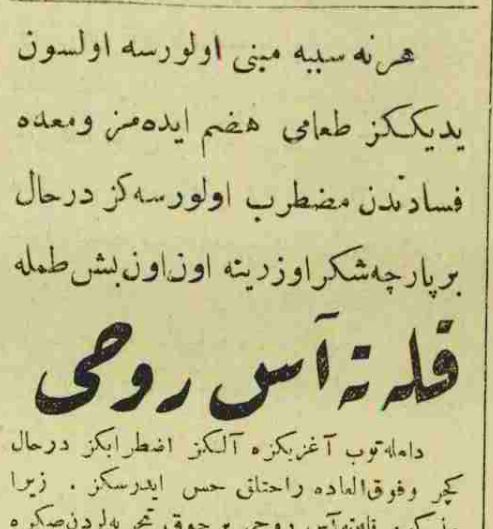 هر نه سببه مبنی اولورسه اولسون
یدیککز طعامی هضم ایده‌مز ومعده
فسادندن مضطرب اولورسه‌کز درحال
بر پارچه شکر اوزرینه اون اون بش طمله
قله ته آس روحی
داملاتوب آغزیکزه آلکز اضطرابکز درحال
کچر وفوق‌العاده راحتلق حس ایدرسکز . زیرا
آس روحی بر چوق تجربه‌لردن صکره